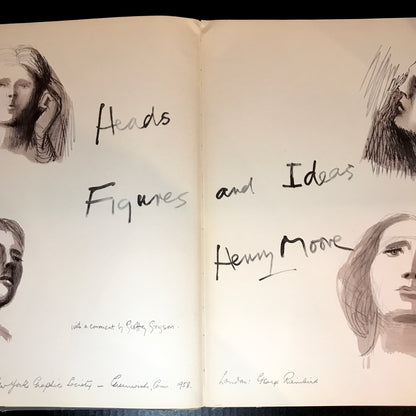 Heads
Figures and Ideas
Henry Moore
with a comment by Geoffrey Grigson.
New York Graphic Society — Greenwich, Conn. 1958.
London: George Rainbird